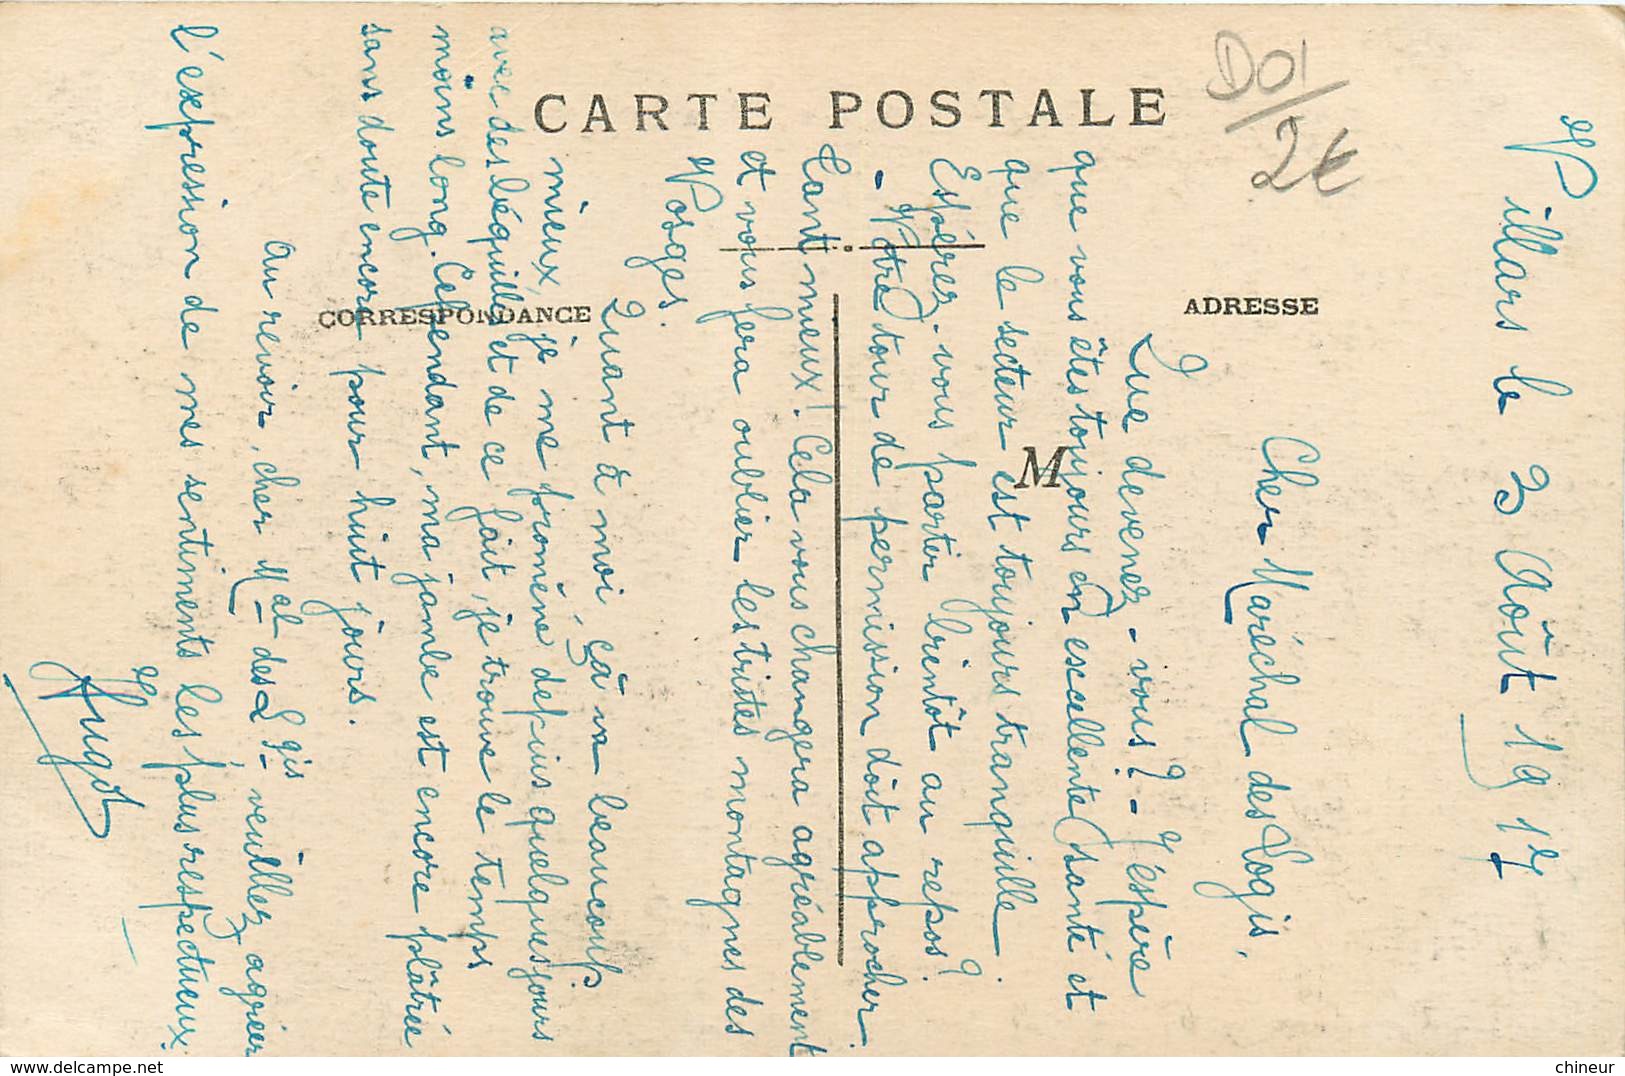 CARTE POSTALE
CORRESPONDANCE
ADRESSE
M
D01/2€
Villars le 3 Août 1917
Cher Maréchal des Logis,
Que devenez-vous? - J'espère
que vous êtes toujours en excellente santé et
que le secteur est toujours tranquille.
Espérez-vous partir bientôt au repos?
- Votre tour de permission dôit approcher.
Tant mieux! Cela vous changera agréablement
et vous fera oublier les tristes montagnes des
Vosges.
Quant à moi, çà va beaucoup
mieux, je me promène depuis quelques jours
avec des béquilles et de ce fait, je trouve le temps
moins long. Cependant, ma jambe est encore plâtrée
sans doute encore pour huit jours.
Au revoir, cher Mal des Lgis veuillez agréer
l'expression de mes sentiments les plus respectueux.
Hugot
chineur